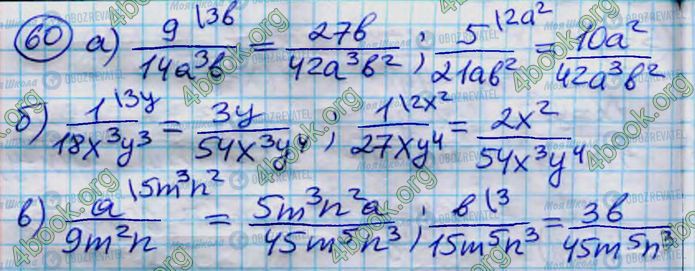 60 а) 9\3b/14a³b = 27b/42a³b²; 5\2a²/21ab² = 10a²/42a³b²
б) 1\3y/18x³y³ = 3y/54x³y⁴; 1\2x²/27xy⁴ = 2x²/54x³y⁴
в) a\5m³n²/9m²n = 5m³n²a/45m⁵n³; b\3/15m⁵n³ = 3b/45m⁵n³
4book.org
OBOZREVATEL
Моя Школа